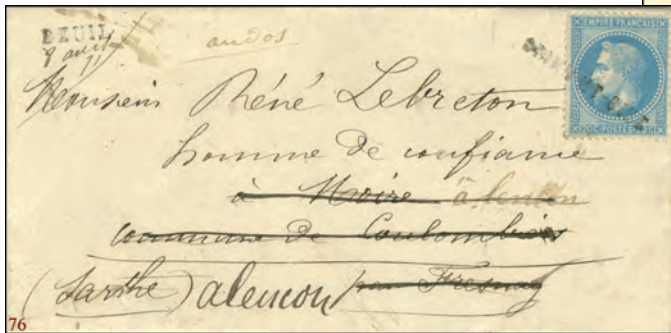 DEUIL
9 avril
71
au dos
EMPIRE FRANCAIS
20 C POSTES 20 C
Monsieur Réné Lebreton
homme de confiance
à Moire alencon
commune de Coulombiers
(Sarthe) alencon par Fresnay
76